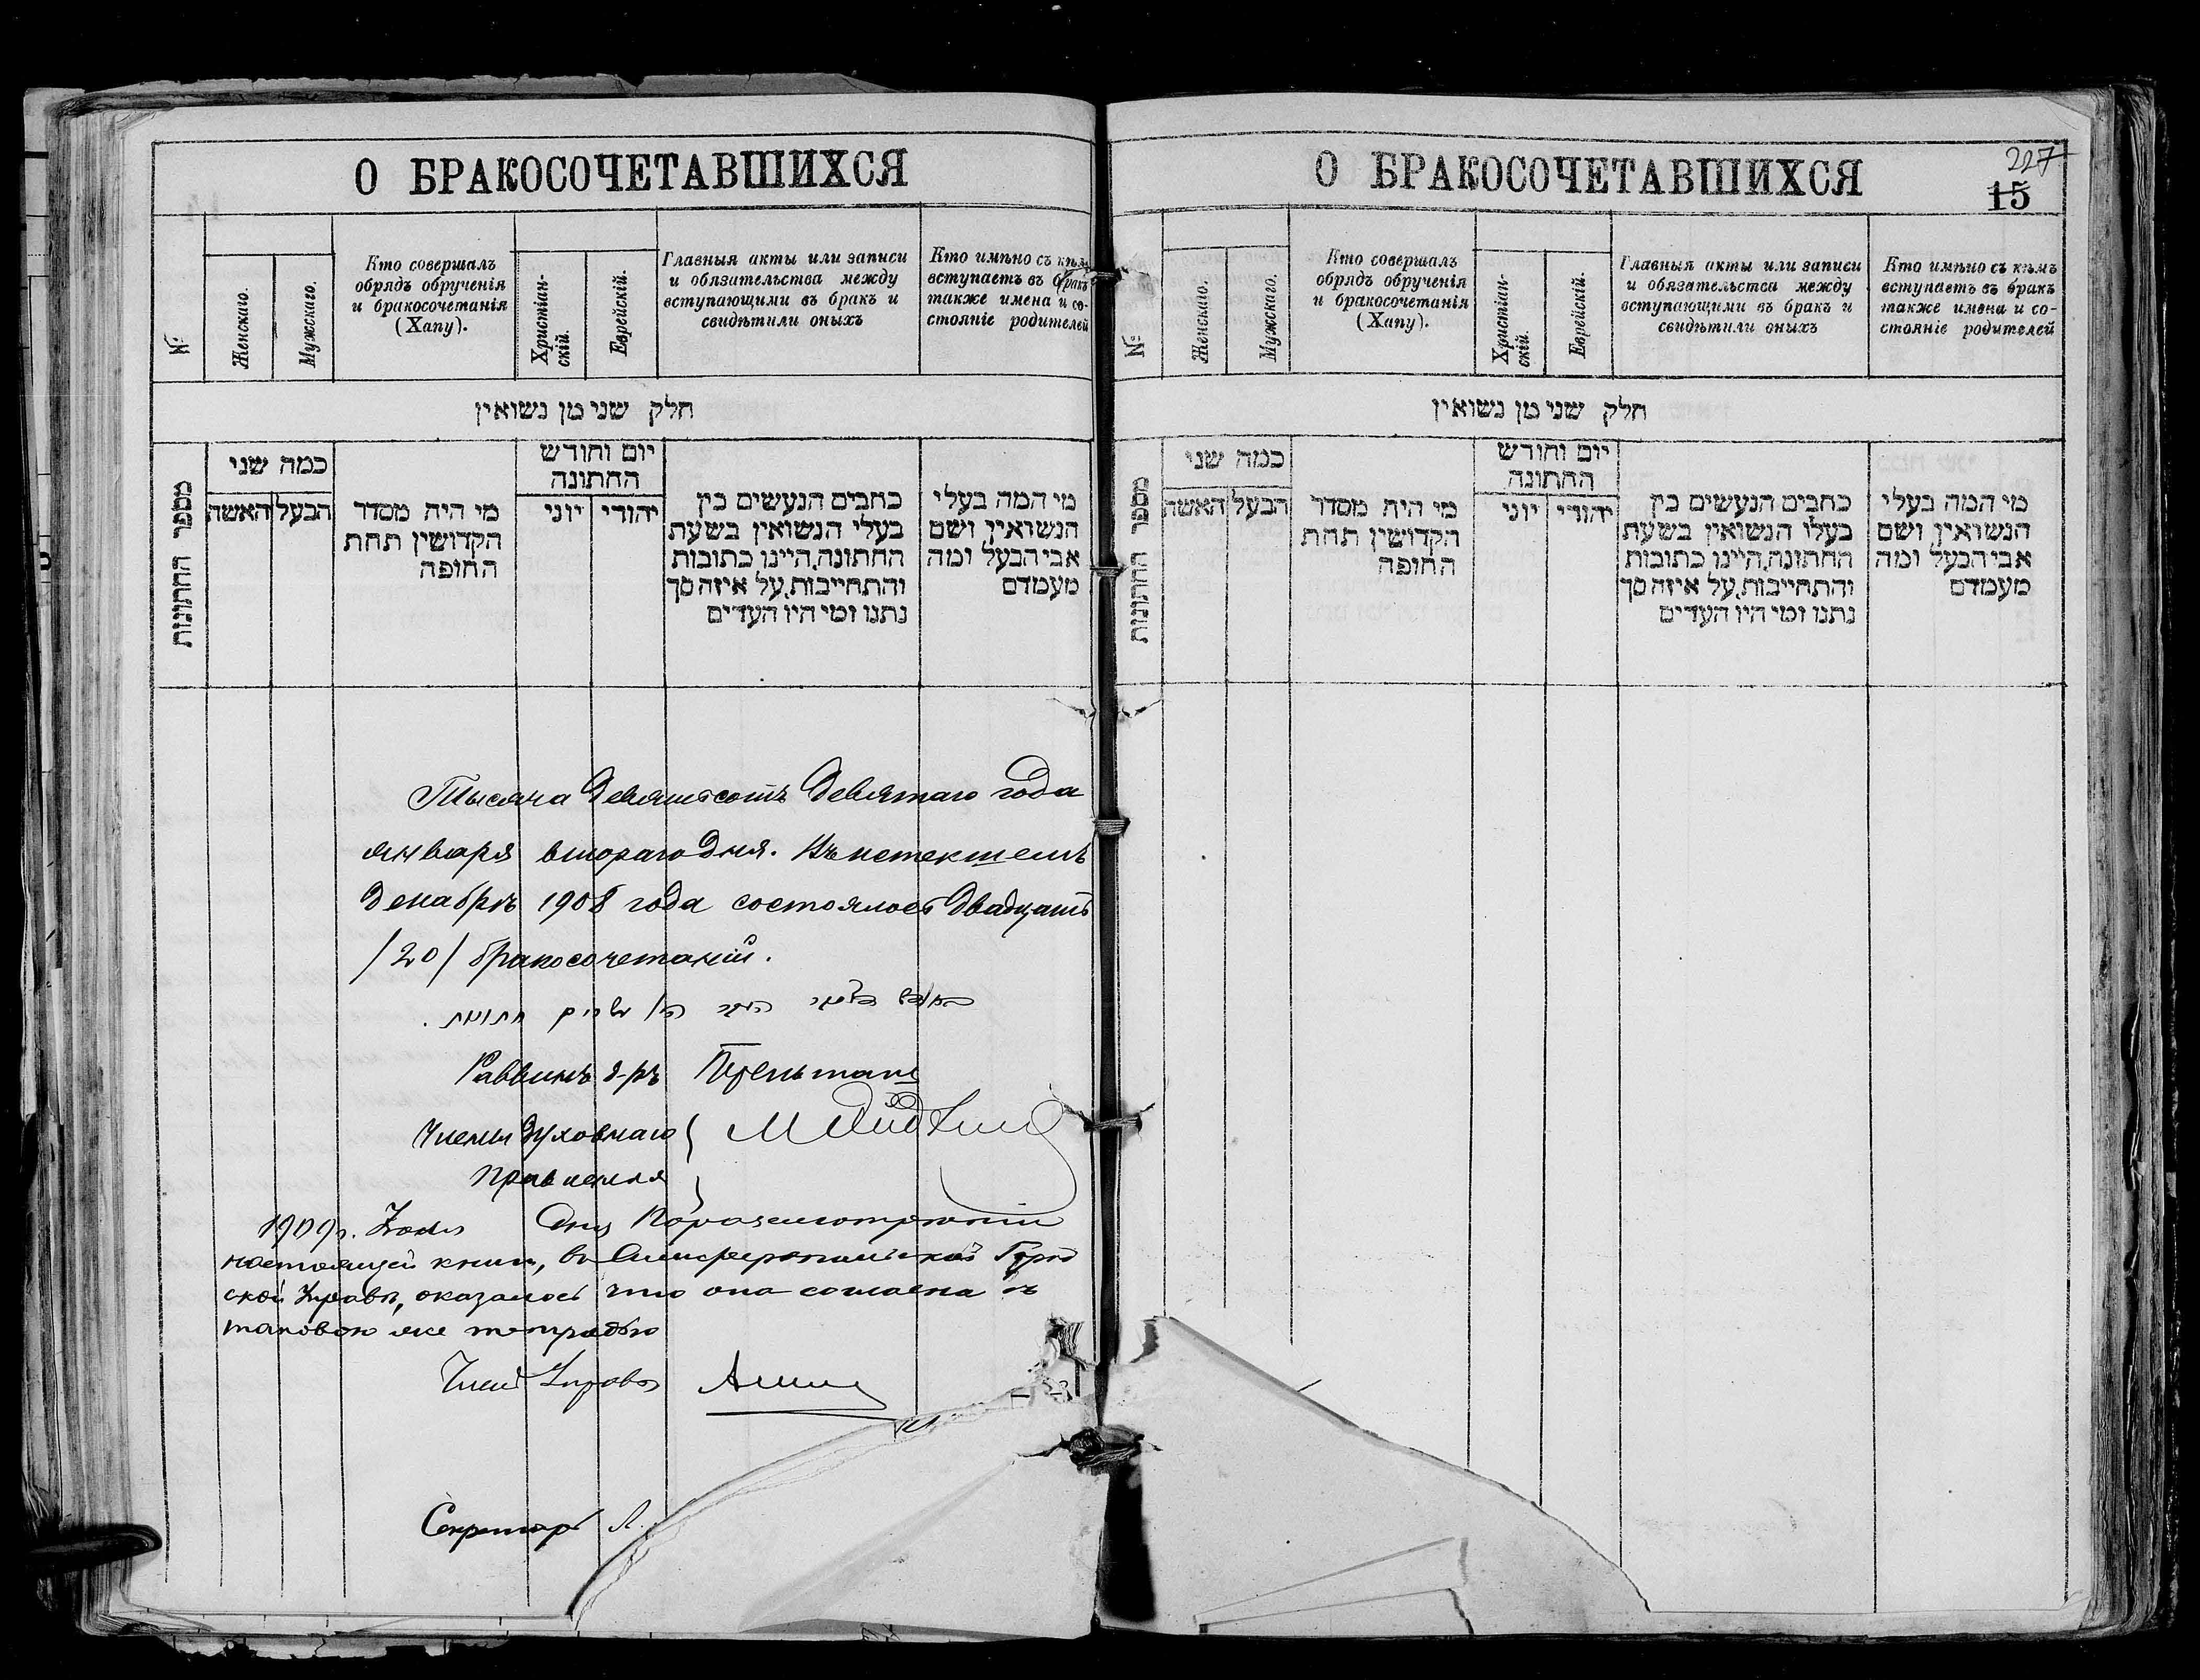 О БРАКОСОЧЕТАВШИХСЯ
№
Женскаго.
Мужскаго.
Кто совершалъ
обрядъ обрученія
и бракосочетанія
(Хапу).
Христіан-
скій.
Еврейскій.
Главныя акты или записи
и обязательства между
вступающими въ бракъ и
свидѣтили оныхъ
Кто имѣно съ кѣмъ
вступаетъ въ бракъ
также имена и со-
стояніе родителей
חלק שני מן נשואין
מספר החתונות
כמה שני
האשה
הבעל
מי היה מסדר
הקדושין תחת
החופה
יום וחודש
החתונה
יוני
יהודי
כתבים הנעשים בין
בעלי הנשואין בשעת
החתונה, היינו כתובות
והתחייבות, על איזה סך
נתנו ומי היו העדים
מי המה בעלי
הנשואין ושם
אבי הבעל ומה
מעמדם
Тысяча девятьсотъ девятаго года
января втораго дня. Въ истекшемъ
Декабрѣ 1908 года состоялось двадцать
/20/ бракосочетаній.
עשרים חתונות.
Раввинъ д-ръ
Члены Духовнаго
Правленія
1909 г. дня По разсмотреніи
настоящей книги, въ Симферопольской Город
ской Управѣ, оказалось что она согласна съ
таковою же тетрадью
Членъ Управы
Секретарь Л.
О БРАКОСОЧЕТАВШИХСЯ
227
15
№
Женскаго.
Мужскаго.
Кто совершалъ
обрядъ обрученія
и бракосочетанія
(Хапу).
Христіан-
скій.
Еврейскій.
Главныя акты или записи
и обязательства между
вступающими въ бракъ и
свидѣтили оныхъ
Кто имѣно съ кѣмъ
вступаетъ въ бракъ
также имена и со-
стояніе родителей
חלק שני מן נשואין
מספר החתונות
כמה שני
האשה
הבעל
מי היה מסדר
הקדושין תחת
החופה
יום וחודש
החתונה
יוני
יהודי
כתבים הנעשים בין
בעלי הנשואין בשעת
החתונה, היינו כתובות
והתחייבות, על איזה סך
נתנו ומי היו העדים
מי המה בעלי
הנשואין ושם
אבי הבעל ומה
מעמדם